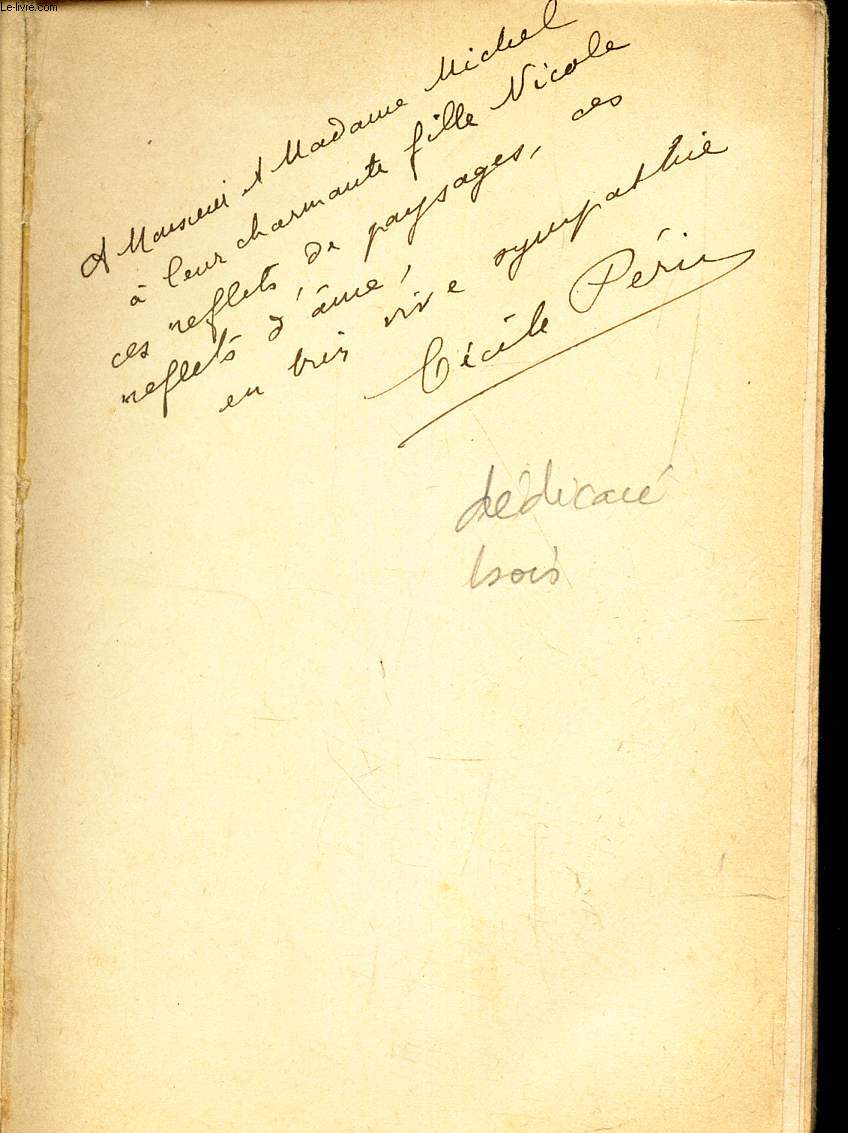 Le-livre.com
A Monsieur et Madame Michel
à leur charmante fille Nicole
ces reflets de paysages, ces
reflets d'âme,
en très vive sympathie
Cécile Périn
dédicacé